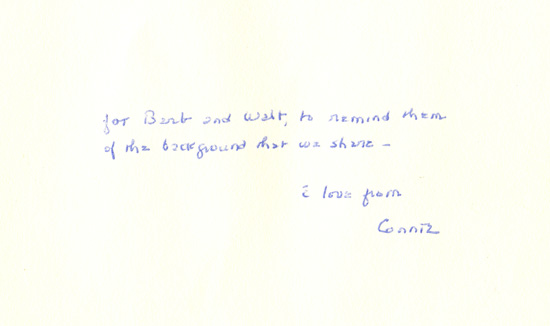 for Barb and Walt, to remind them
of the background that we share –
c̄ love from
Connie